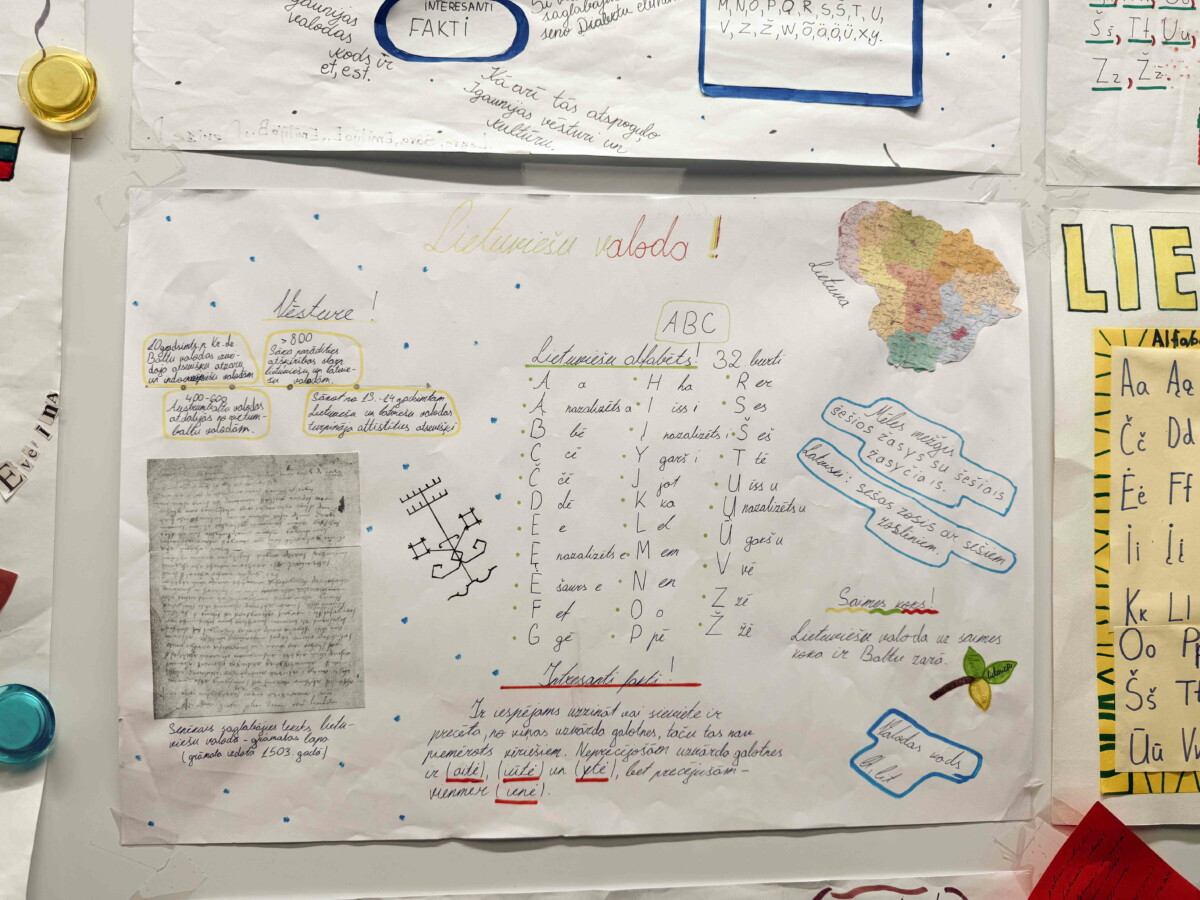 INTERESANTI
FAKTI
valodas
kods ir
et, est.
Kā arī tās atspoguļo
Igaunijas vēsturi un
kultūru.
M, N, O, P, Q, R, S, Š, T, U,
V, Z, Ž, W, Õ, Ä, Ö, Ü, X, Y.
Šš, Tt, Uu,
Zz, Žž.
Evelīna
Lietuviešu valoda!
Lietuva
Vēsture!
>800
Sāka parādīties
atšķirības starp
lietuviešu un latvie-
šu valodām.
400.-600.
Austrumbaltu valodas
atdalījās no rietum-
baltu valodām.
Sākot no 13.-14 gadsimtam
lietuviešu un latviešu valodas
turpināja attīstīties atsevišķi
Senākais saglabājies teksts lietu-
viešu valodā - grāmatas lapa
(grāmata izdota 1503. gadā)
ABC
Lietuviešu alfabēts! 32 burti
A a H ha R er
Ą nazalizēts a I iss i S es
B bē Į nazalizēts i Š eš
C cē Y garš i T tē
Č čē J jot U iss u
D dē K ka Ų nazalizēts u
E e L el Ū garš u
Ę nazalizēts e M em V vē
Ė šaurs e N en Z zē
F ef O o Ž žē
G gē P pē
Mēles mežģis
šešios žąsys su šešiais
žąsyčiais.
Latviski: sešas zosis ar sešiem
zoslēniem.
Saimes koks!
Lietuviešu valoda uz saimes
koka ir Baltu zarā.
Valodas kods
lt, lit
Intresanti fakti!
Ir iespējams uzzināt vai sieviete ir
precēta, no viņas uzvārda galotnes, taču tas nav
piemērots vīriešiem. Neprecējušām uzvārda galotnes
ir (aitė), (iūtė) un (ytė), bet precējušām -
vienmēr (ienė).
LIE
Alfabē
Aa Ąą
Čč Dd
Ėė Ff
Ii Įį
Kk Ll
Oo Pp
Šš Tt
Ūū Vv